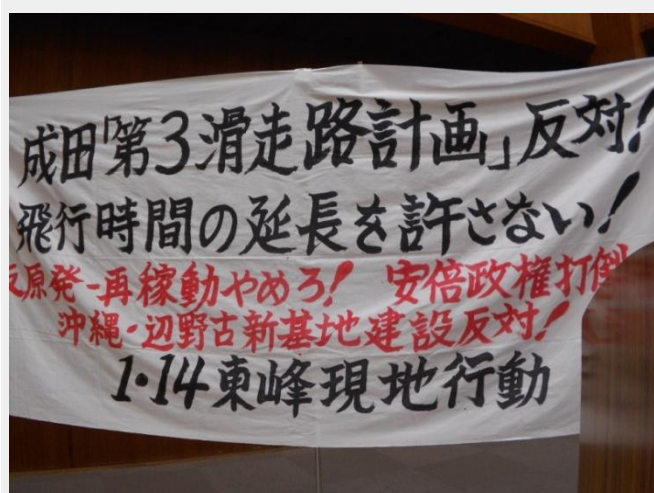 成田「第3滑走路計画」反対!
飛行時間の延長を許さない!
反原発-再稼動やめろ! 安倍政権打倒
沖縄・辺野古新基地建設反対!
1・14東峰現地行動